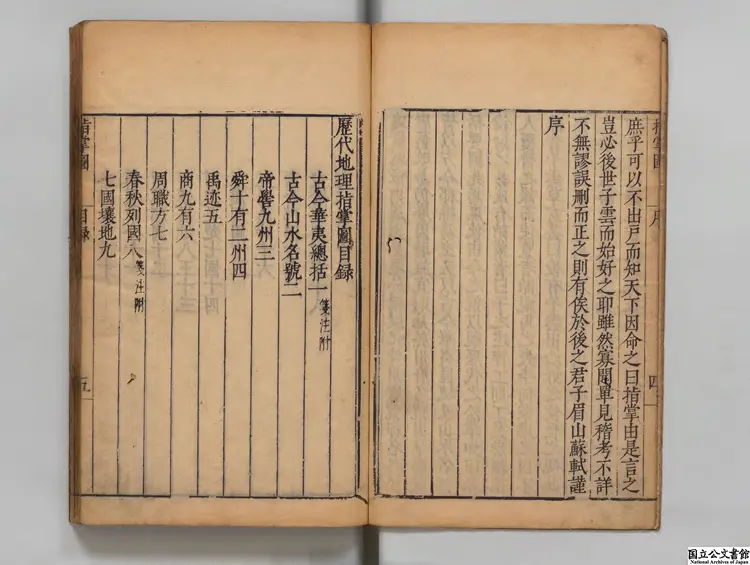 庶乎可以不出戸而知天下因命之曰指掌由是言之
豈必後世子雲而始好之耶雖然寡聞單見稽考不詳
不無謬誤刪而正之則有俟於後之君子眉山蘇軾謹
序
指掌圖
序
四
歷代地理指掌圖目録
古今華夷總括一 箋注附
古今山水名號二
帝嚳九州三
舜十有二州四
禹迹五
商九有六
周職方七
春秋列國八 箋注附
七國壤地九
指掌圖
目録
五
国立公文書館
National Archives of Japan